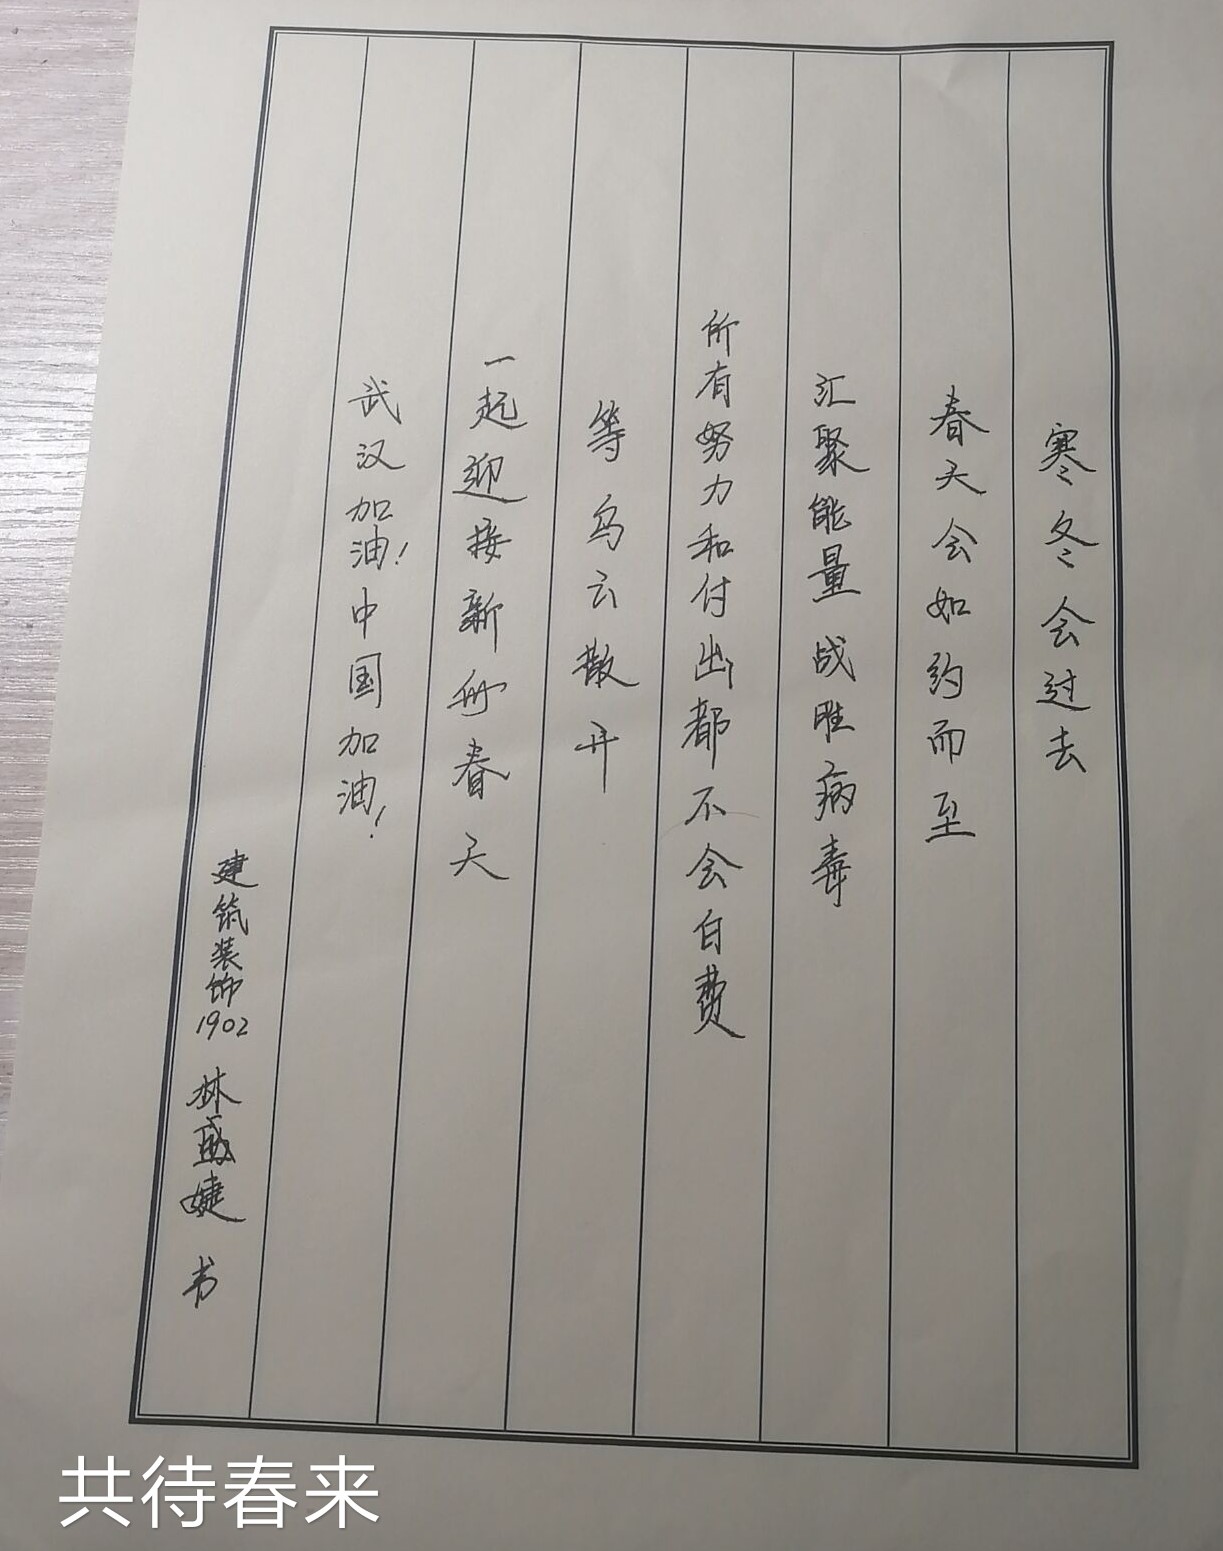 寒冬会过去
春天会如约而至
汇聚能量战胜病毒
所有努力和付出都不会白费
等乌云散开
一起迎接新的春天
武汉加油！中国加油！
建筑装饰1902 林盛婕 书
共待春来